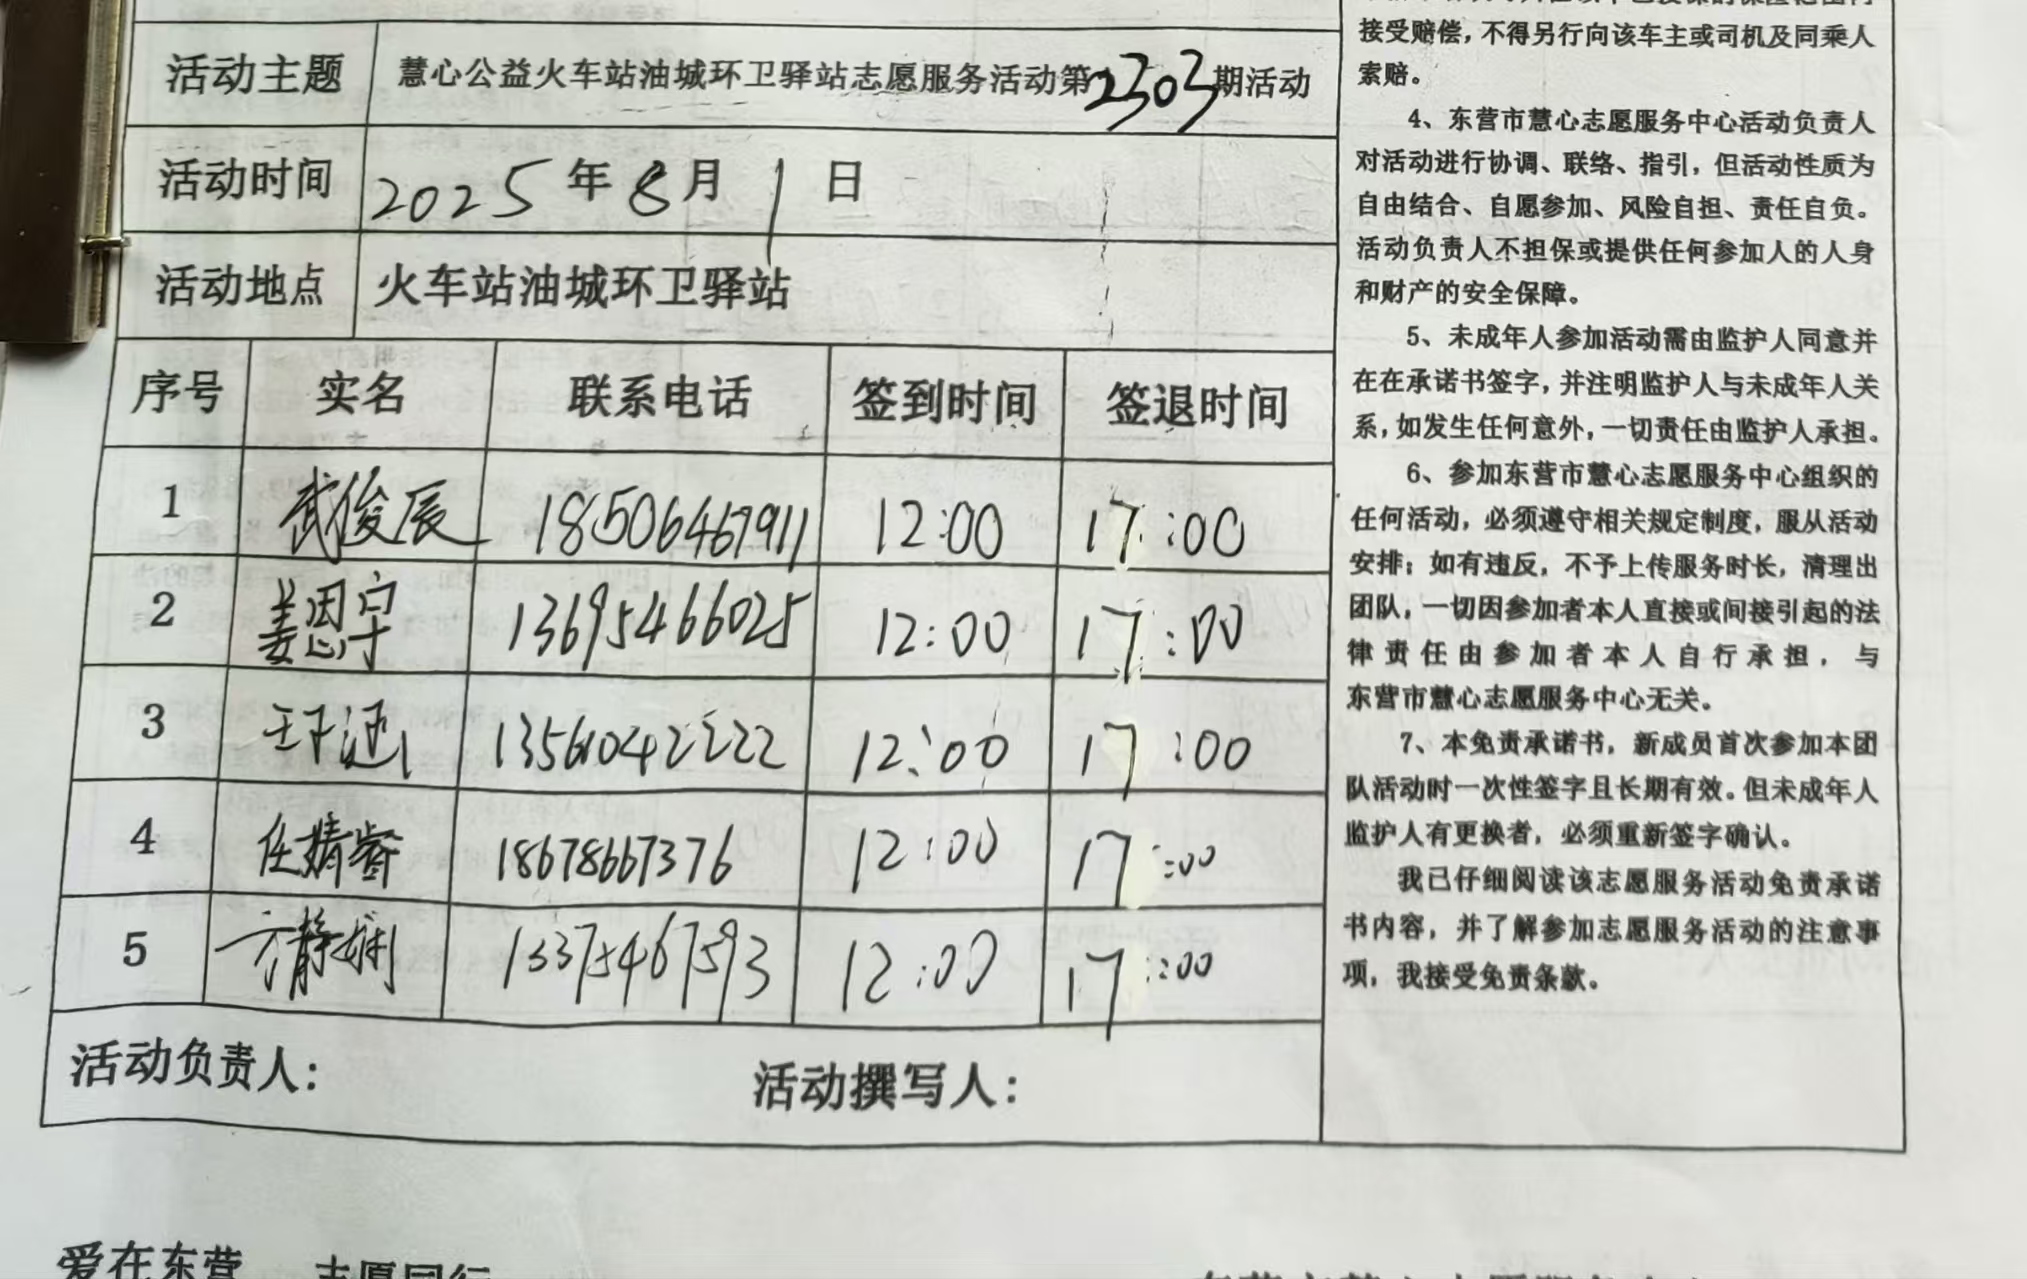 活动主题 慧心公益火车站油城环卫驿站志愿服务活动第2303期活动
活动时间 2025年8月1日
活动地点 火车站油城环卫驿站
序号 实名 联系电话 签到时间 签退时间
1 武俊辰 18506467911 12:00 17:00
2 姜恩宁 13695466025 12:00 17:00
3 13561042222 12:00 17:00
4 任婧睿 18678667376 12:00 17:00
5 方静娴 13375467593 12:00 17:00
活动负责人： 活动撰写人：
接受赔偿，不得另行向该车主或司机及同乘人
索赔。
4、东营市慧心志愿服务中心活动负责人
对活动进行协调、联络、指引，但活动性质为
自由结合、自愿参加、风险自担、责任自负。
活动负责人不担保或提供任何参加人的人身
和财产的安全保障。
5、未成年人参加活动需由监护人同意并
在在承诺书签字，并注明监护人与未成年人关
系，如发生任何意外，一切责任由监护人承担。
6、参加东营市慧心志愿服务中心组织的
任何活动，必须遵守相关规定制度，服从活动
安排；如有违反，不予上传服务时长，清理出
团队，一切因参加者本人直接或间接引起的法
律责任由参加者本人自行承担，与
东营市慧心志愿服务中心无关。
7、本免责承诺书，新成员首次参加本团
队活动时一次性签字且长期有效。但未成年人
监护人有更换者，必须重新签字确认。
我已仔细阅读该志愿服务活动免责承诺
书内容，并了解参加志愿服务活动的注意事
项，我接受免责条款。
爱在东营 志愿同行